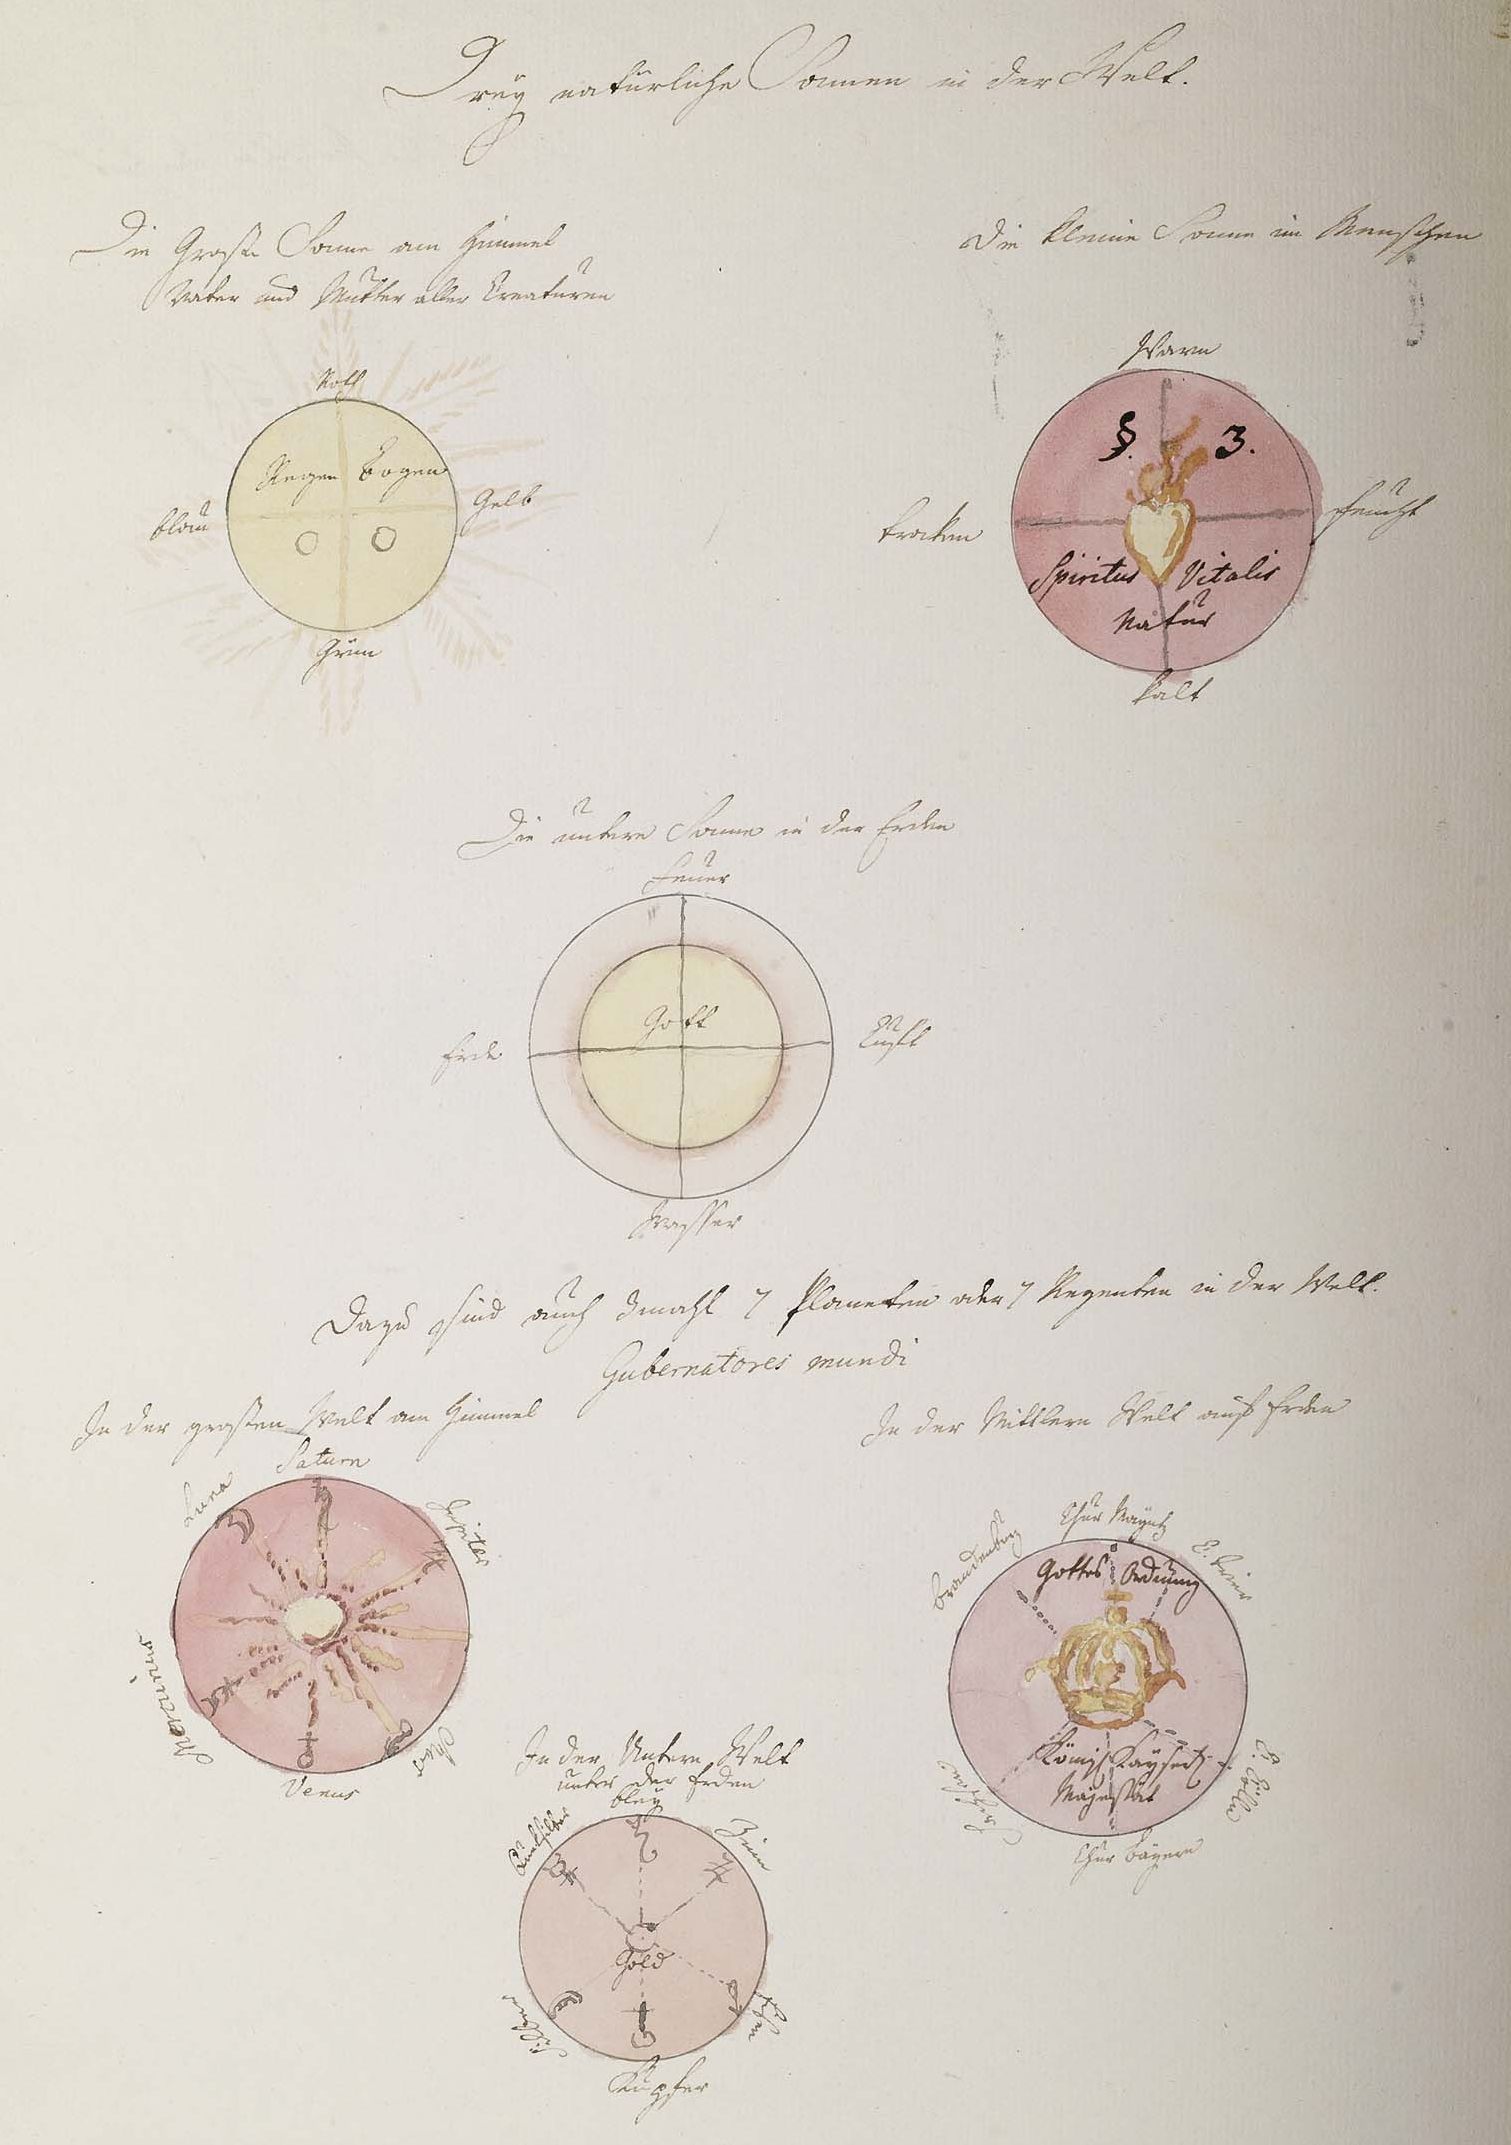 Dreÿ natürliche Sonnen in der Welt.
Die Große Sonne am Himmel
Vater und Mutter aller Creaturen
Roth
Regen Bogen
blau
Gelb
Grün
Die kleine Sonne im Menschen
Warm
§. 3.
trocken
feucht
Spiritus Vitalis
Natur
kalt
Die untere Sonne in der Erden
Feuer
Gott
Erde
Lufft
Wasser
Dazu sind auch 3mahl 7 Planeten oder 7 Regenten in der Welt.
Gubernatores mundi
In der großen Welt am Himmel
Saturn
Luna
Jupiter
Mercurius
Mars
Venus
In der Mittlern Welt auf Erden
Chur Maÿntz
Brandenburg
C. Trier
Gottes Ordnung
Königl Kaÿserl
Majestät
C. Cölln
Chur Baÿern
In der Untern Welt
unter der Erden
bleÿ
Quecksilber
Zinn
♄
♃
Gold
Silber
Eisen
Kupfer